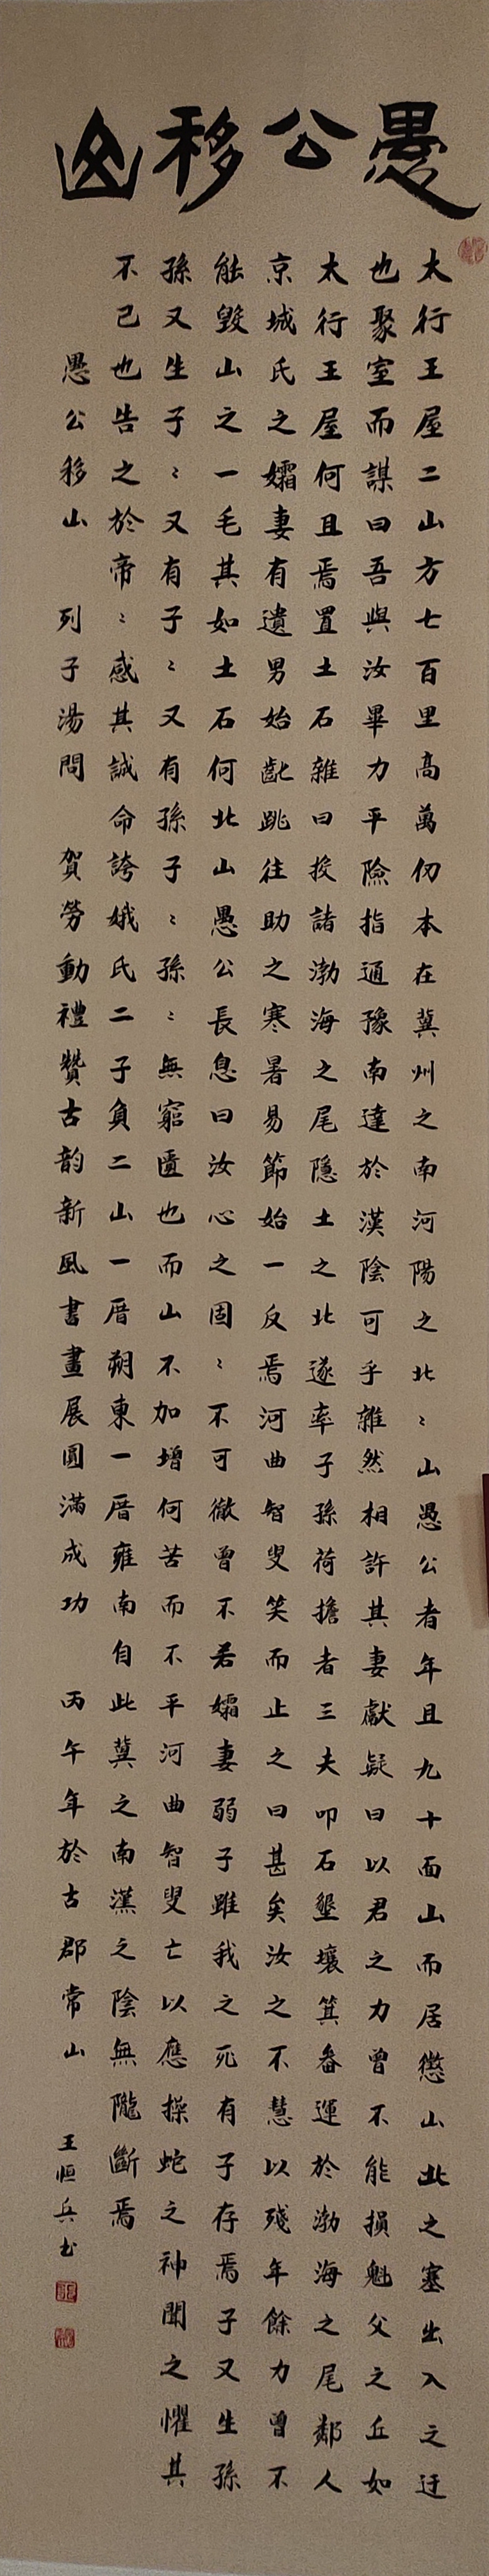 愚公移山
太行王屋二山方七百里高萬仞本在冀州之南河陽之北〻山愚公者年且九十面山而居懲山北之塞出入之迂
也聚室而謀曰吾與汝畢力平險指通豫南達於漢陰可乎雜然相許其妻獻疑曰以君之力曾不能損魁父之丘如
太行王屋何且焉置土石雜曰投諸渤海之尾隱土之北遂率子孫荷擔者三夫叩石墾壤箕畚運於渤海之尾鄰人
京城氏之孀妻有遺男始齔跳往助之寒暑易節始一反焉河曲智叟笑而止之曰甚矣汝之不慧以殘年餘力曾不
能毀山之一毛其如土石何北山愚公長息曰汝心之固〻不可徹曾不若孀妻弱子雖我之死有子存焉子又生孫
孫又生子〻又有子〻又有孫子〻孫〻無窮匱也而山不加增何苦而不平河曲智叟亡以應操蛇之神聞之懼其
不已也告之於帝〻感其誠命誇娥氏二子負二山一厝朔東一厝雍南自此冀之南漢之陰無隴斷焉
愚公移山 列子湯問 賀勞動禮贊古韵新風書畫展圓滿成功 丙午年於古郡常山 王恒兵书